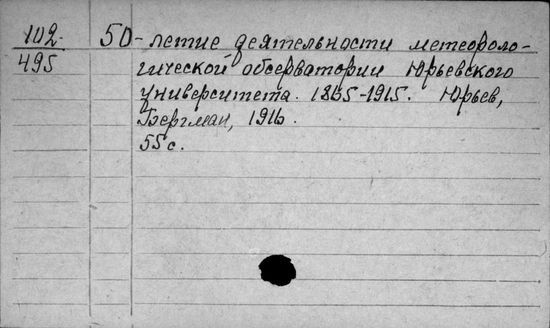 102
495
50-летие деятельности метеороло-
гической обсерватории Юрьевского
университета. 1865-1915. Юрьев,
Бергман, 1916.
55 с.